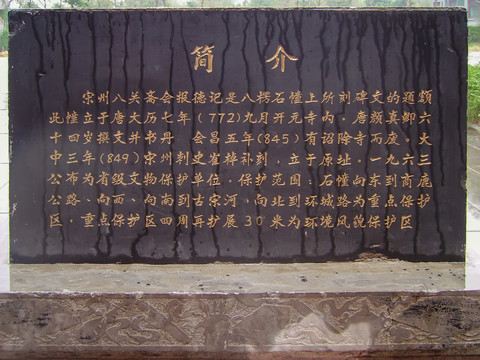 简介
宋州八关斋会报德记是八楞石幢上所刻碑文的题额
此幢立于唐大历七年(772)九月开元寺内。唐颜真卿六
十四岁撰文并书丹。会昌五年(845)有诏除寺而废。大
中三年(849)宋州刺史崔倬补刻,立于原址。一九六三
公布为省级文物保护单位。保护范围:石幢向东到商鹿
公路、向西、向南到古宋河,向北到环城路为重点保护
区,重点保护区四周再扩展30米为环境风貌保护区